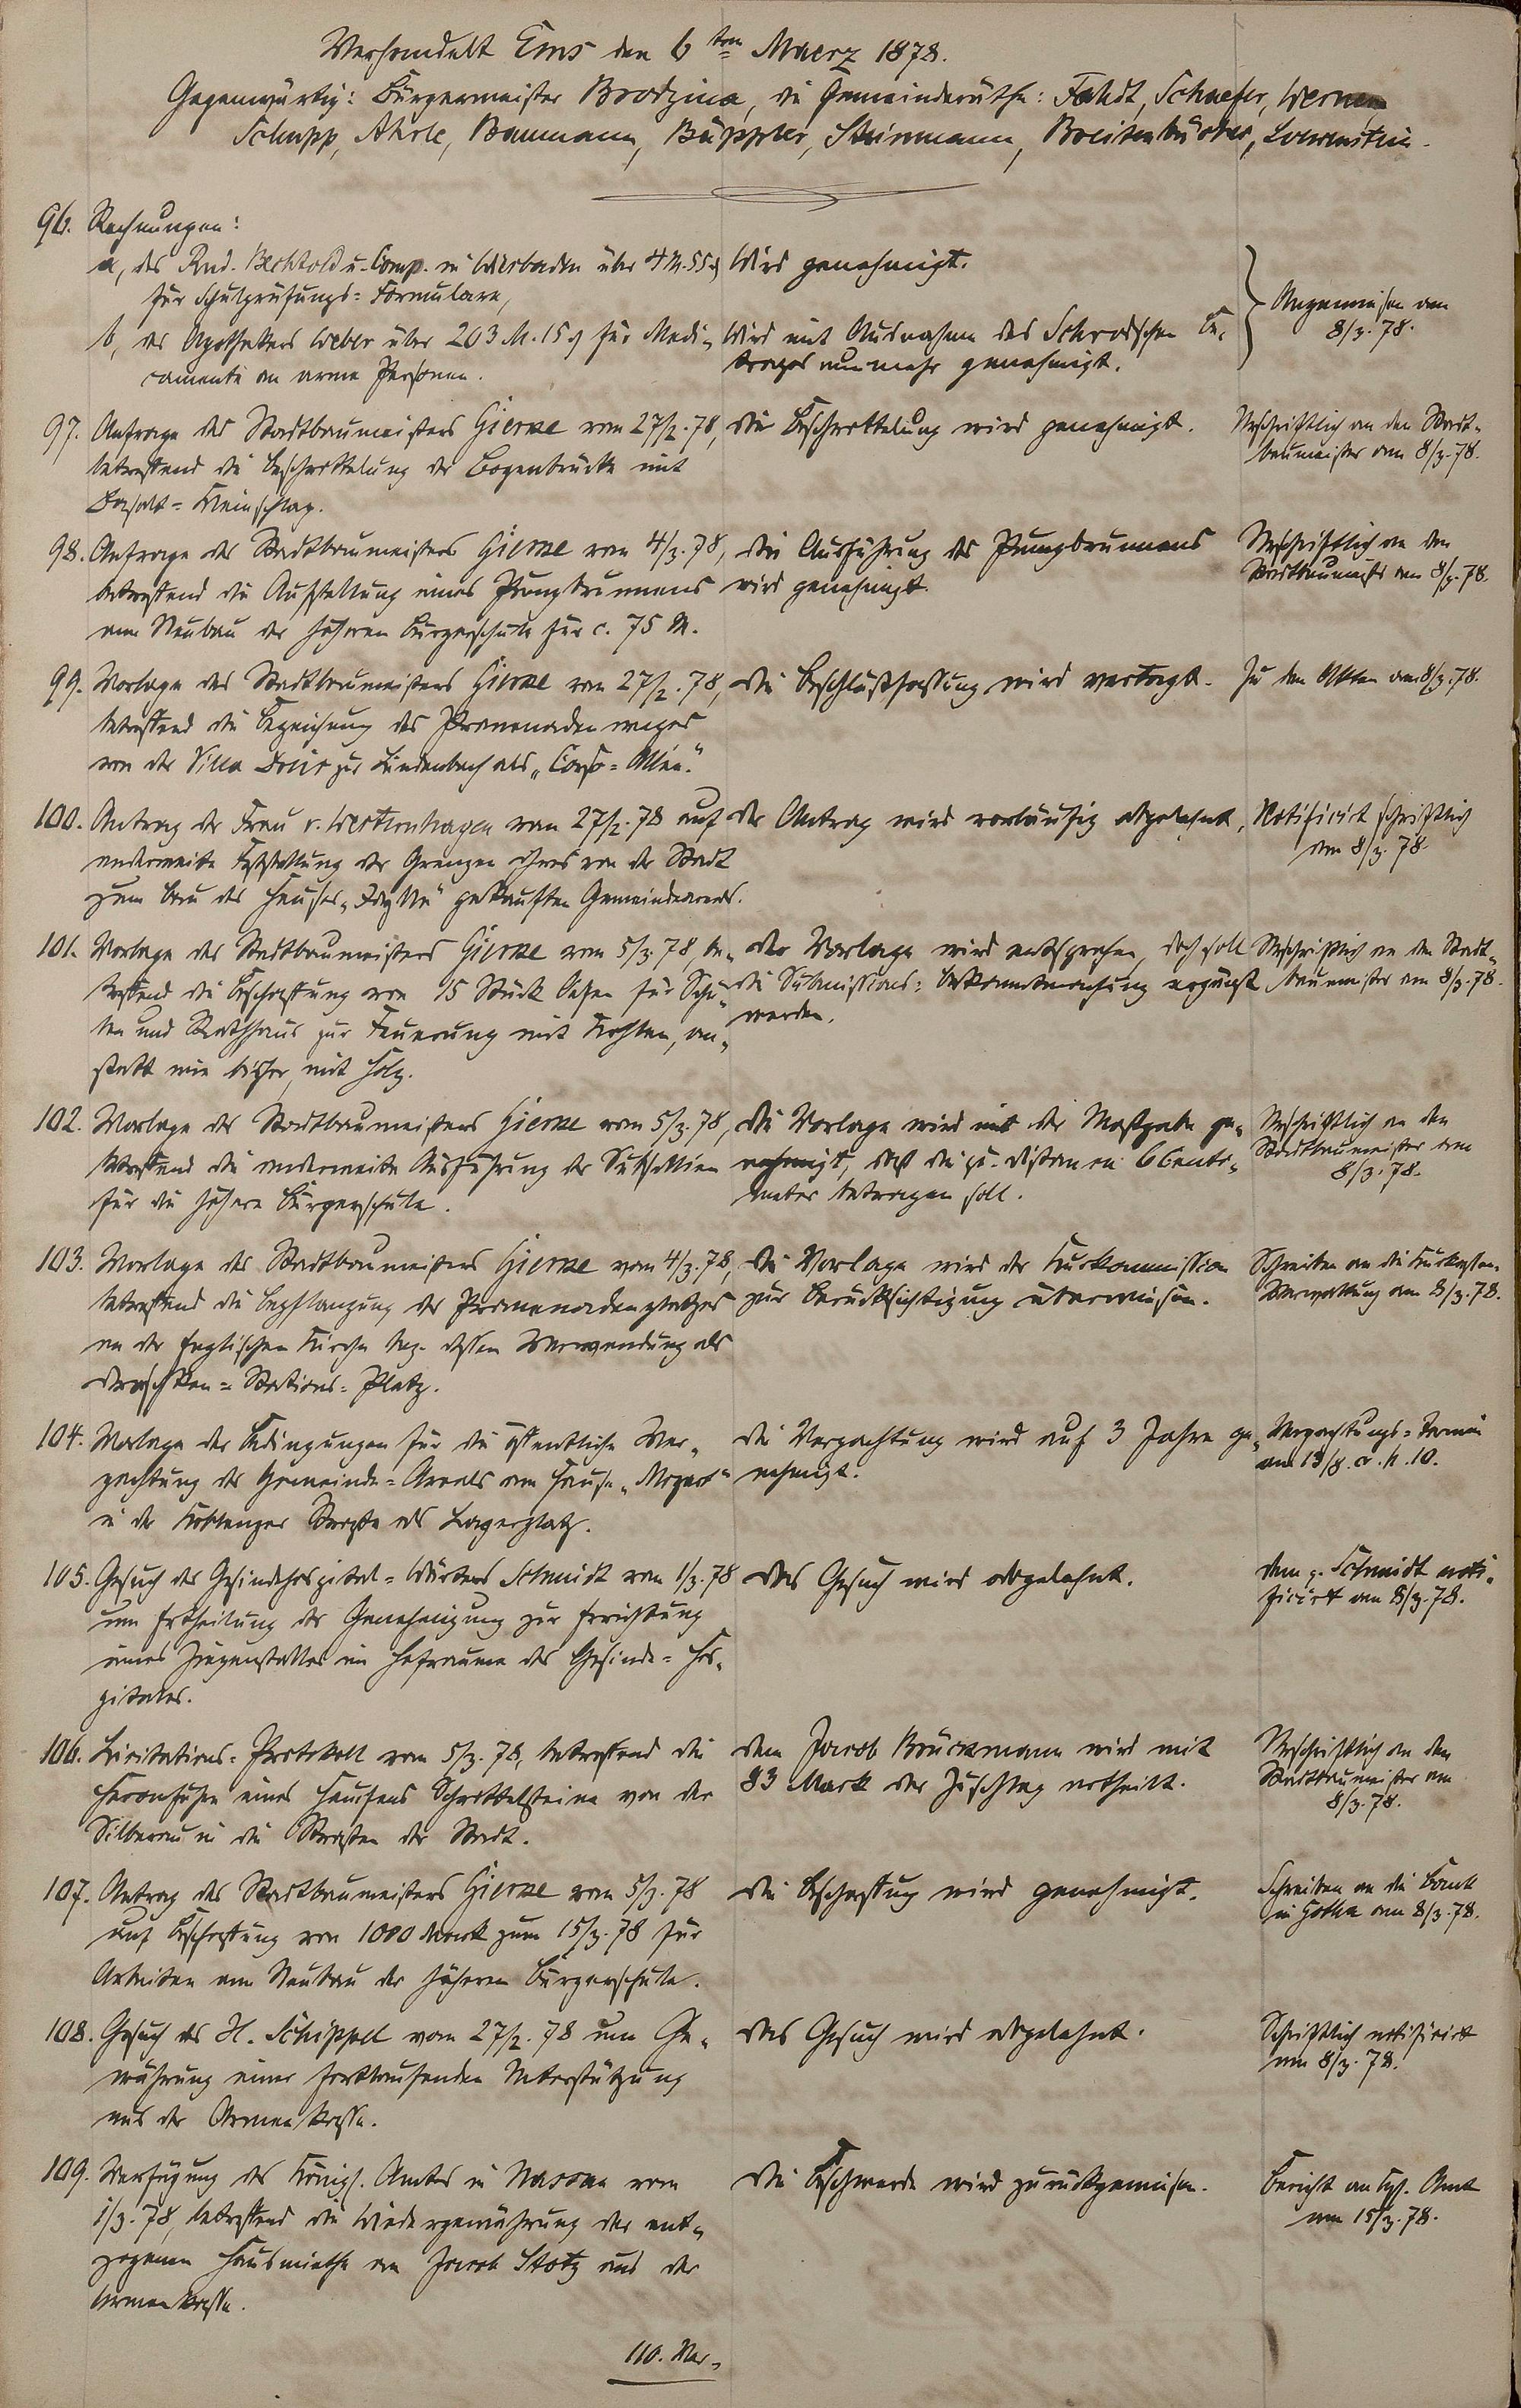 Verhandelt Ems den 6ten Maerz 1878.
Gegenwärtig: Bürgermeister Brodzina, die Gemeinderäthe: Fahdt, Schaefer, Werner
Schupp, Ahrle, Baumann, Büppler, Steinmann, Breitenbücher, Loewenstein.
96. Rechnungen:
a, des Rud. Bechtold u. Comp. in Wiesbaden über 4 M. 55 ₰
für Schulprüfungs=Formulare,
Wird genehmigt.
b, des Apothekers Weber über 203 M. 15 ₰ für Medi-
camente an arme Personen.
Wird mit Ausnahme des Schrodschen Be-
trages nunmehr genehmigt.
Angewiesen am
8/3. 78.
97. Anfrage des Stadtbaumeisters Gierke vom 27/2. 78,
betreffend die Beschrottelung der Bogenbrücke mit
Basalt=Kleinschlag.
Die Beschrottelung wird genehmigt.
Urschriftlich an den Stadt-
baumeister am 8/3. 78.
98. Anfrage des Stadtbaumeisters Gierke vom 4/3. 78,
betreffend die Aufstellung eines Pumpbrunnens
am Neubau der höheren Bürgerschule für c. 75 M.
Die Ausführung des Pumpbrunnens
wird genehmigt.
Urschriftlich an den
Stadtbaumeister am 8/3. 78.
99. Vorlage des Stadtbaumeisters Gierke vom 27/2. 78,
betreffend die Bezeichnung des Promenadenweges
von der Villa zur Lindenbach als „Corso=Allée."
Die Beschlußfassung wird vertagt.
Zu den Akten am 8/3. 78.
100. Antrag der Frau v. Westernhagen vom 27/2. 78 auf
anderweite Feststellung der Grenzen ihres von der Stadt
zum Bau des Hauses „Idylle" gekauften Gemeindeareals.
Der Antrag wird vorläufig abgelehnt.
Notificirt schriftlich
am 8/3. 78.
101. Vorlage des Stadtbaumeisters Gierke vom 5/3. 78, be-
treffend die Beschaffung von 15 Stück Oefen für Schu-
len und Rathhaus zur Feuerung mit Kohlen, an-
statt wie bisher, mit Holz.
Der Vorlage wird entsprochen, doch soll
die Submissions=Bekanntmachung ergänzt
werden.
Urschriftlich an den Stadt-
baumeister am 8/3. 78.
102. Vorlage des Stadtbaumeisters Gierke vom 5/3. 78,
betreffend die anderweite Ausführung der Subsellien
für die höhere Bürgerschule.
Die Vorlage wird mit der Maßgabe ge-
nehmigt, daß die Distance 6 Centi-
meter betragen soll.
Urschriftlich an den
Stadtbaumeister am
8/3. 78.
103. Vorlage des Stadtbaumeisters Gierke vom 4/3. 78,
betreffend die Bepflanzung des Promenadenplatzes
an der Englischen Kirche bez. dessen Verwendung als
Droschken=Stations=Platz.
Die Vorlage wird der Kurkommission
zur Berücksichtigung überwiesen.
Schreiben an die Kurkassen-
Verwaltung am 8/3. 78.
104. Vorlage der Bedingungen für die öffentliche Ver-
pachtung des Gemeinde=Areals am Hause „Mozart"
in der Koblenzer Straße als Lagerplatz.
Die Verpachtung wird auf 3 Jahre ge-
nehmigt.
Verpachtungs=Termin
am 13/3. c. h. 10.
105. Gesuch des Gesindehospital=Wärters Schmidt vom 1/3. 78
um Ertheilung der Genehmigung zur Errichtung
eines Ziegenstalles im Hofraume des Gesinde=Hos-
pitales.
Das Gesuch wird abgelehnt.
Dem p. Schmidt noti-
ficirt am 8/3. 78.
106. Licitations=Protokoll vom 5/3. 78, betreffend die
Heranfuhr eines Haufens Schrottelsteine von der
Silberau in die Straßen der Stadt.
Dem Jacob Brückmann wird mit
83 Mark der Zuschlag ertheilt.
Urschriftlich an den
Stadtbaumeister am
8/3. 78.
107. Antrag des Stadtbaumeisters Gierke vom 5/3. 78
auf Beschaffung von 1000 Mark zum 15/3. 78 für
Arbeiten am Neubau der höheren Bürgerschule.
Die Beschaffung wird genehmigt.
Schreiben an die Bank
in Gotha am 8/3. 78.
108. Gesuch des H. Schippel vom 27/2. 78 um Ge-
währung einer fortlaufenden Unterstützung
aus der Armenkasse.
Das Gesuch wird abgelehnt.
Schriftlich notificirt
am 8/3. 78.
109. Verfügung des Königl. Amtes in Nassau vom
1/3. 78, betreffend die Wiedergewährung der ent-
zogenen Hausmiethe an Jacob Stotz aus der
Armenkasse.
Die Beschwerde wird zurückgewiesen.
Bericht an Kgl. Amt
am 15/3. 78.
110. Ver-